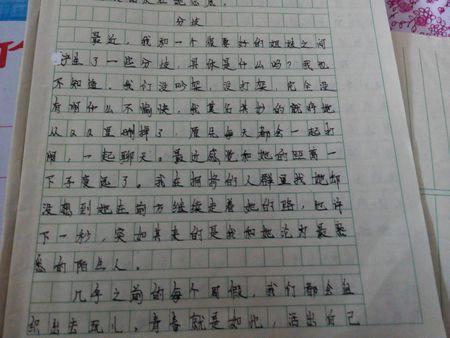 分歧
最近，我和一个很要好的姐妹之间
产生了一些分歧，具体是什么吗？我也
不知道。我们没吵架，没打架，完全没
有什么不愉快，我莫名其妙的就将她
从QQ里删掉了，原先每天都会一起打
闹，一起聊天。最近感觉和她的距离一
下子变远了。我在拥挤的人群里找她却
没想到她在前方继续走着她的路，也许
下一秒，突如其来的是我和她沦为最熟
悉的陌生人。
几年之前的每个周假，我们都会组
织出去玩儿，青春就是如此，活出自己